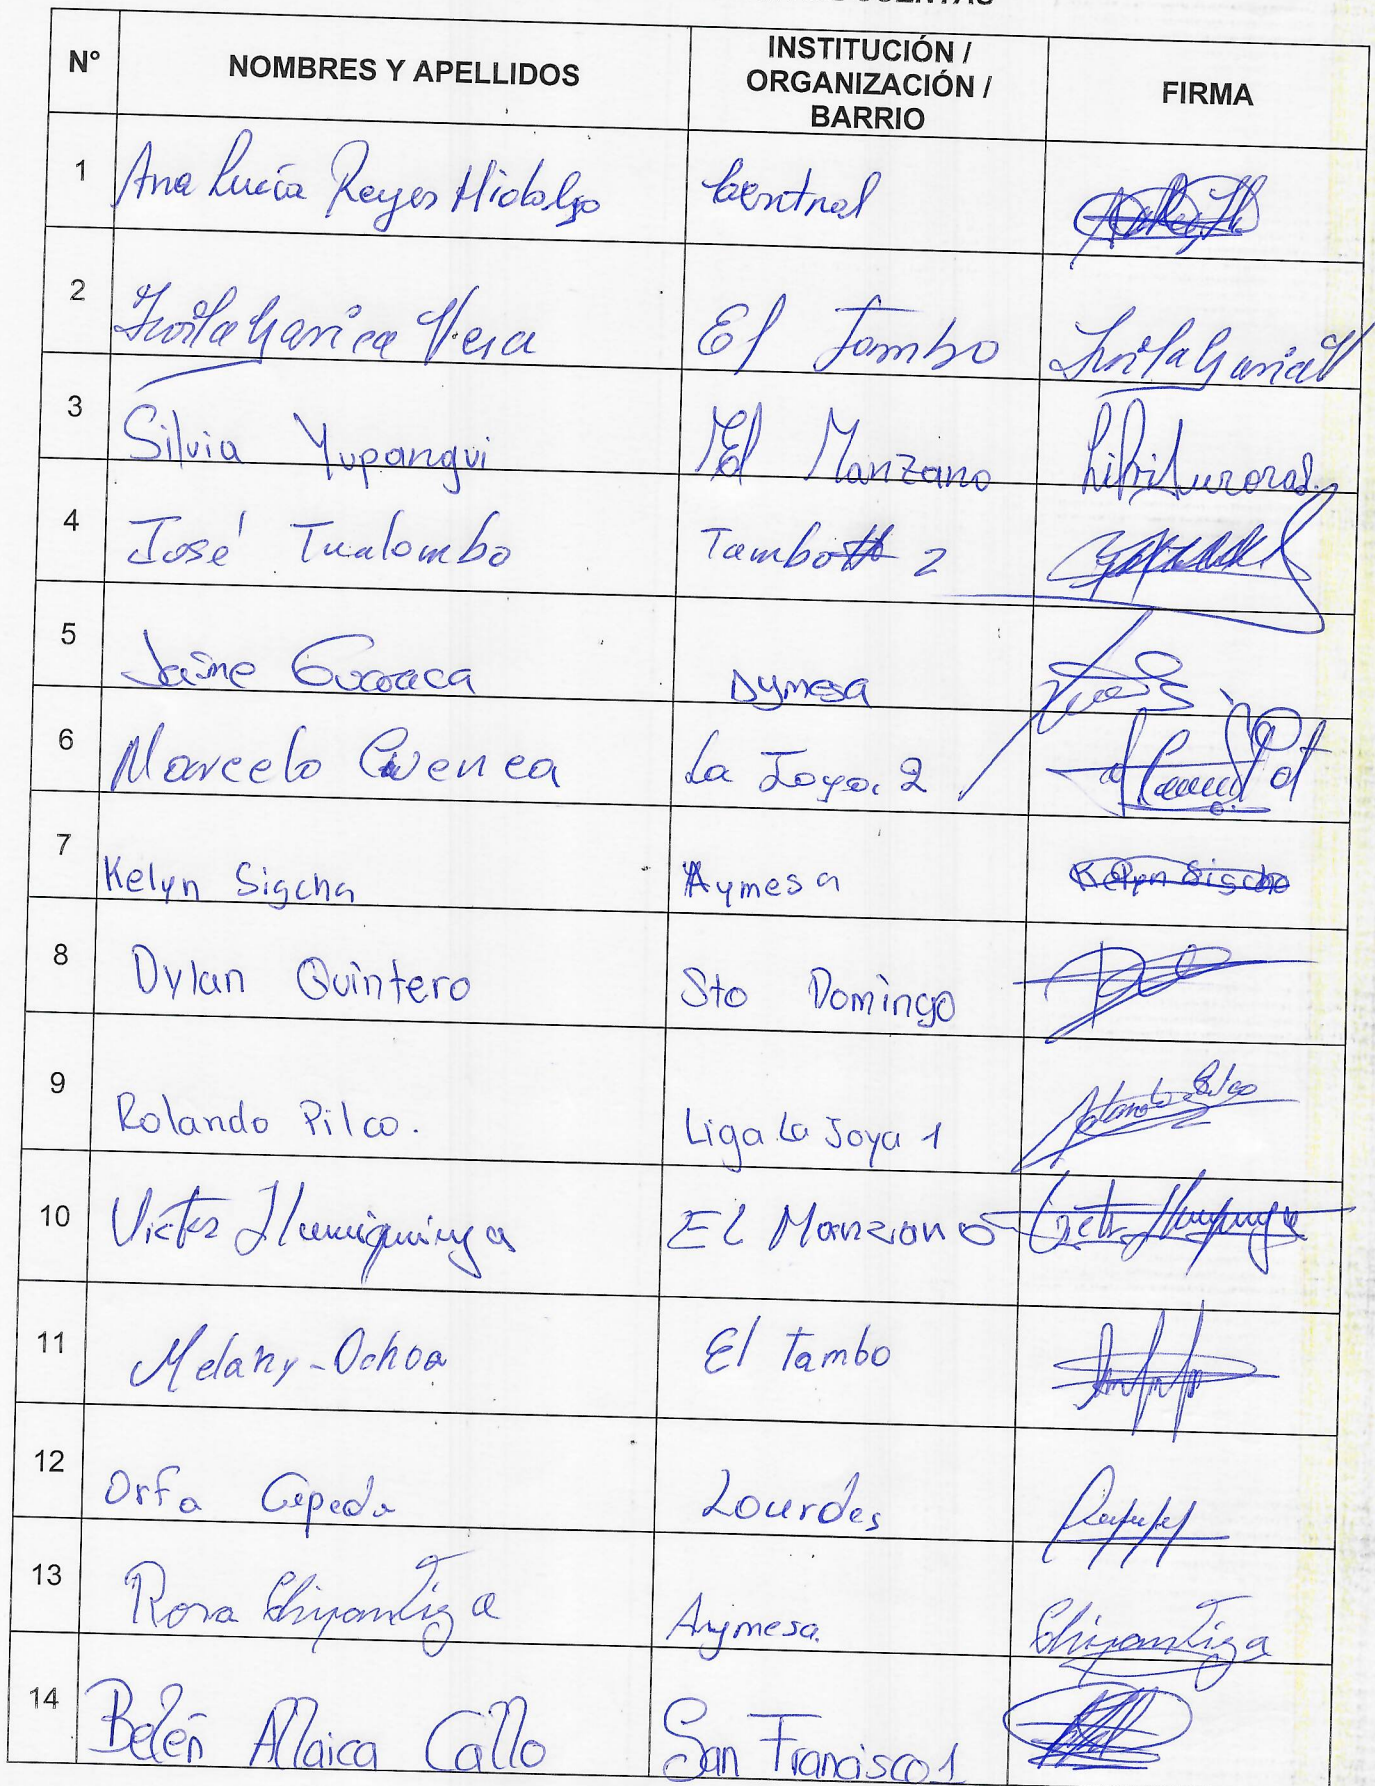 N° NOMBRES Y APELLIDOS INSTITUCIÓN / ORGANIZACIÓN / BARRIO FIRMA
1 Ana Lucía Reyes Hidalgo Central
2 García Vera El Tambo
3 Silvia Yupangui El Manzano
4 José Tualombo Tambo 2
5 Jaime Guaraca Aymesa
6 Marcelo Cuenca La Joya. 2
7 Kelyn Sigcha Aymesa Kelyn Sigcha
8 Dylan Quintero Sto Domingo
9 Rolando Pilco. Liga La Joya 1 Rolando Pilco
10 Victor Llumiquinga EL Manzano
11 Melany-Ochoa El Tambo
12 Orfa Cepeda Lourdes
13 Rosa Chipantiza Aymesa. Chipantiza
14 Belén Allaica Callo San Francisco 1